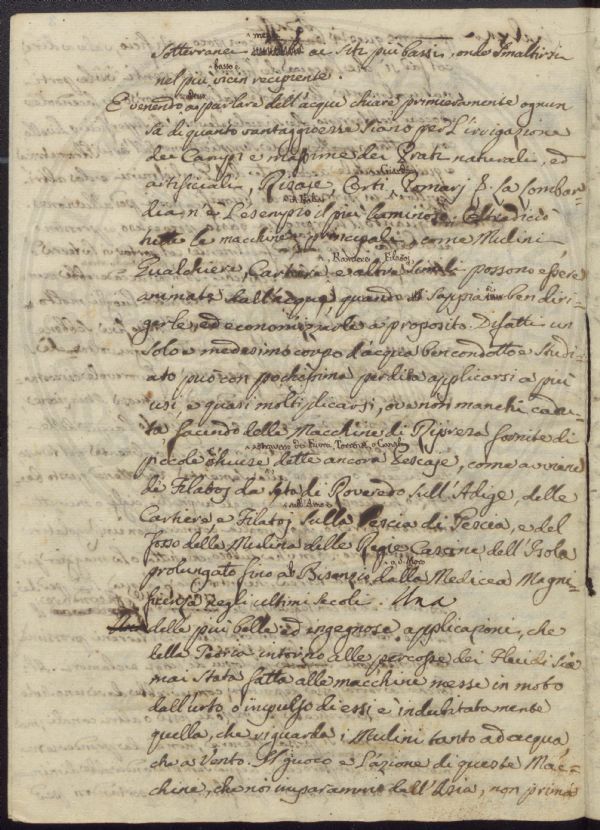 sotterranei ai siti più bassi, onde smaltirsi
nel più vicin recipiente.
E venendo a parlare dell'acque chiare primieramente ognun
sà di quanto vantaggio esse siano per l'irrigazione
dei Campi e massime dei Prati naturali, ed
artificiali, Risaje, Orti, Pomarj &. La Lombar-
dia n'è l'esempio il più luminoso.
tutte le macchine principali, come Mulini,
Gualchiere, Cartiere e altre simili possono essere
animate dall'acque, quando si sappia ben diri-
gerle, ed economizzarle a proposito. Difatti un
solo e medesimo corpo d'acqua ben condotto e studi-
ato può con pochissima perdita applicarsi a più
usi, e quasi moltiplicarsi, ove non manchi cadu-
ta, facendo delle Macchine di Ripresa fornite di
piccole chiuse dette ancora Pescaje, come avviene
di Filatoj da Seta di Roveredo sull'Adige, delle
Cartiere e Filatoj sulla Pescia di Pescia, e del
fosso delle Mulina delle Regie Cascine dell'Isola
prolungato fino a Bisenzio dalla Medicea Magni-
ficenza negli ultimi secoli. Una
delle più belle ed ingegnose applicazioni, che
della Teoria intorno alle percosse dei Fluidi sia
mai stata fatta alle macchine messe in moto
dall'urto o impulso di essi è indubitatamente
quella, che riguarda i Mulini tanto ad acqua
che a Vento. Il giuoco e l'azione di queste Mac-
chine, che noi imparammo dall'Asia, non prima